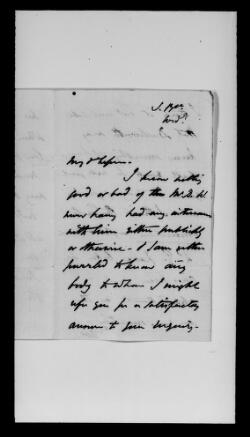 My d
I know nothing
good or bad of this Mr.
never having had any intercourse
with him either publickly
or otherwise - & I am rather
puzzled to know any
body to whom I might
refer you for a satisfactory
answer to your inquiry.